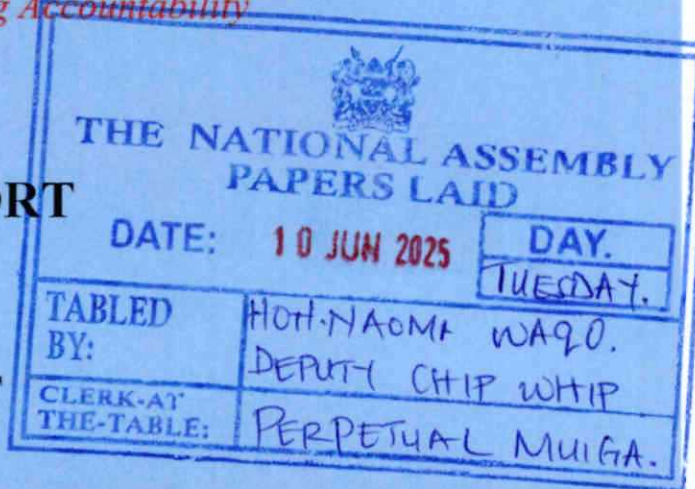 g Accountability
THE NATIONAL ASSEMBLY
PAPERS LAID
ORT
DATE: 10 JUN 2025 DAY.
TUESDAY.
TABLED BY: HON. NAOMI WAQO.
DEPUTY CHIP WHIP
CLERK-AT THE-TABLE: PERPETUAL MUIGA.